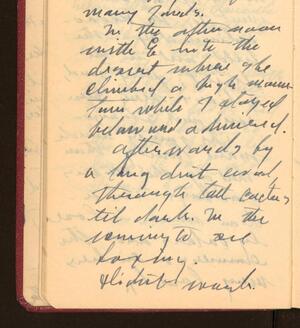 many birds.
In the afternoon
with E into the
desert where she
climbed a high moun
tain while I stayed
below and admired.
Afterwards by
a long dirt road
through tall cactus
til dark. In the
evening to see
boxing.
Didn't wash.